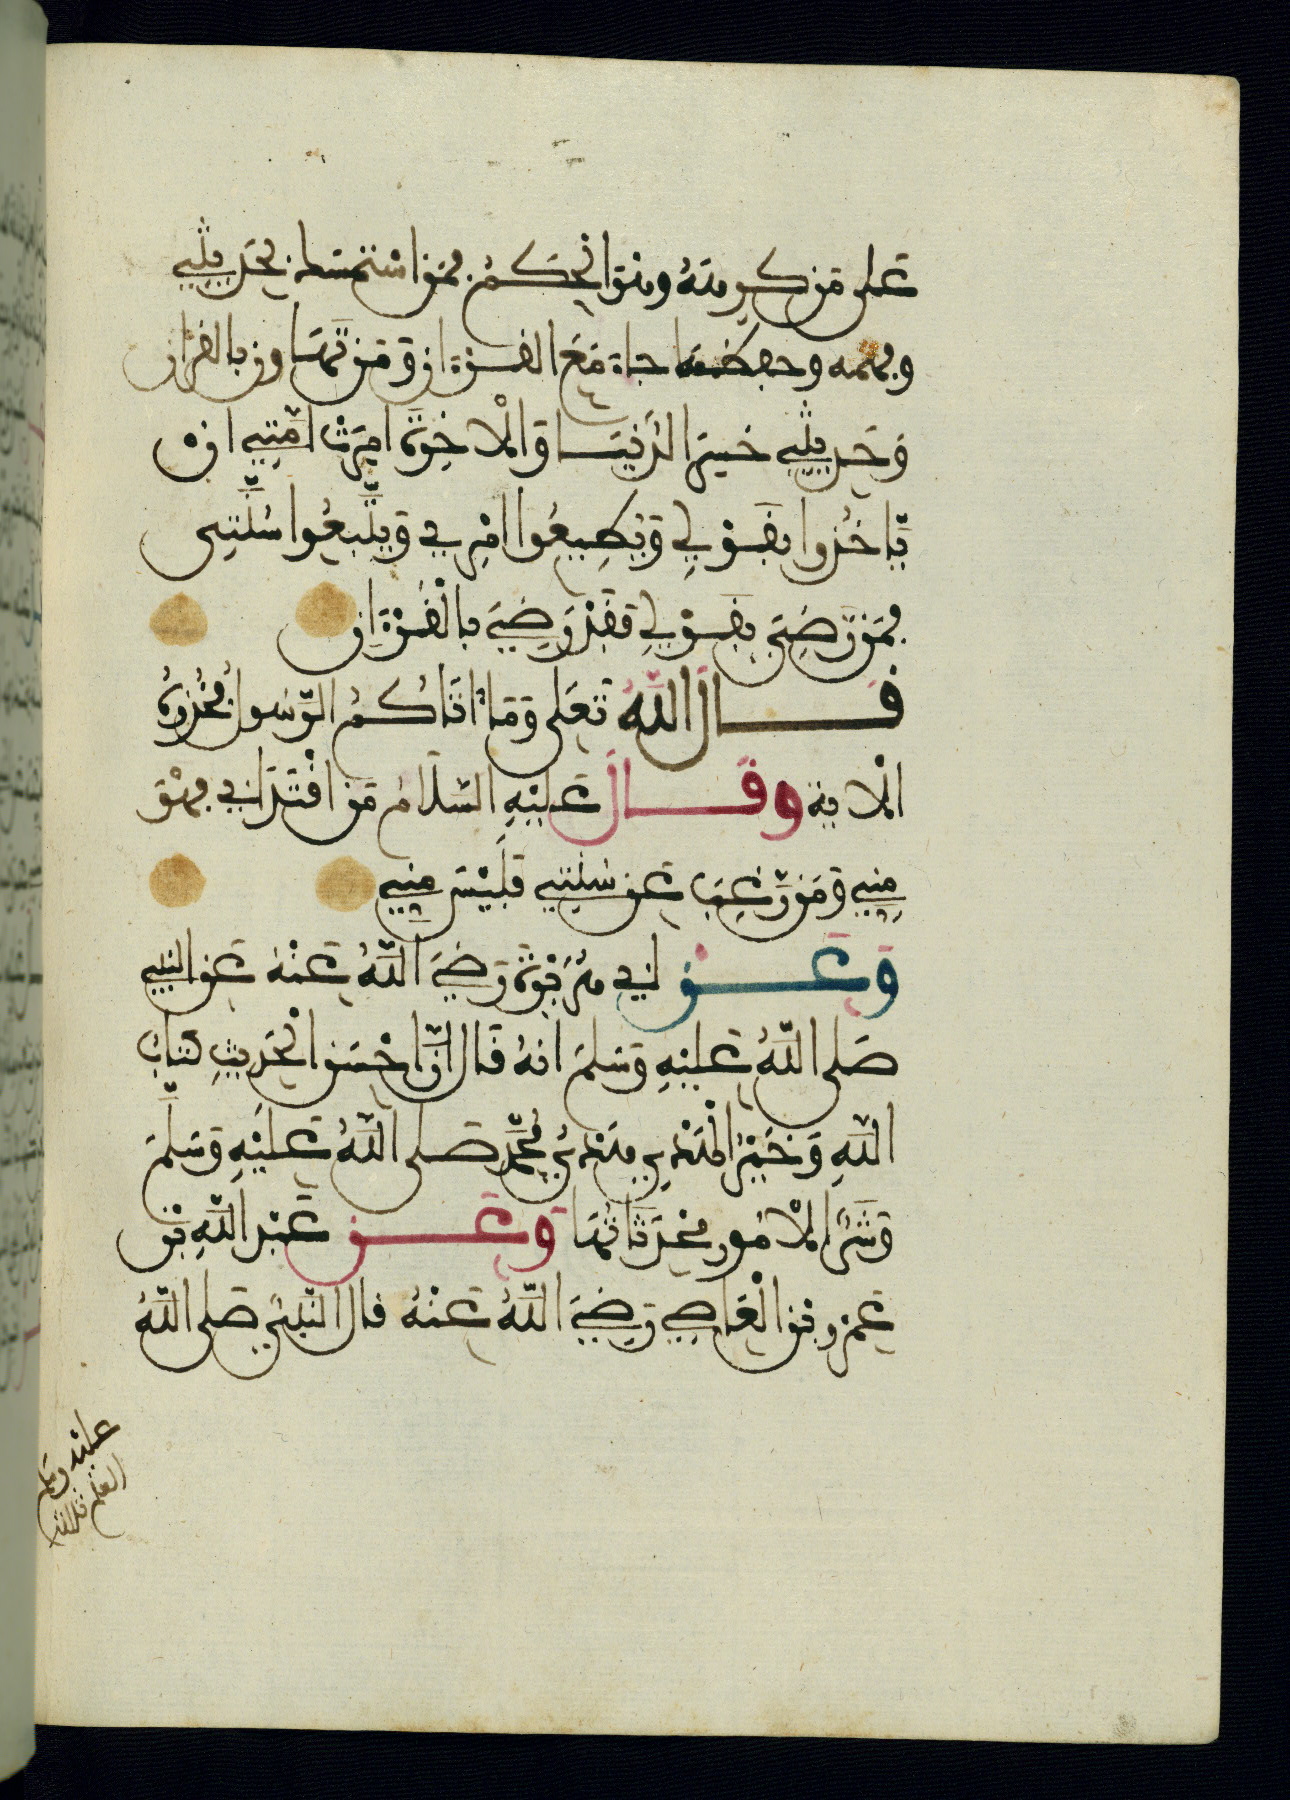 عَلى مَن كرهَهُ وهوَ الحَكَمُ فمن استمسك بحَدِيثِي
وفهمه وحفظه جاء مَعَ القرءان وَمَن تَهَاون بالقرءان
وَحديثِي خسِرَ الدُّنيَا وَالاخِرَةَ امِرَتْ امَّتِي ان
يَّاخُذوا بقَولِي وَيُطِيعُوا امْرِي وَيتَّبعُوا سُنَّتِي
فمَن رَّضِيَ بقولِي فقَدْ رَضِيَ بالْقُرْءَانِ
قال اللَّهُ تَعَلى وَمَا ءاتَاكُمُ الرَّسُولُ فخُذوهُ
الاية وقال عَليْهِ السَّلام مَن اقْتَدَا بي فهْوَ
مِنِّي وَمَن رَّغِبَ عَن سُنَّتِي فَليْسَ مِنِّي
وَعَن ابي هُرَيْرَةَ رَضِيَ اللَّهُ عَنْهُ عَن النَّبِي
صَلى اللَّهُ عَليْهِ وَسَلمَ انهُ قَال انَّ احْسَنَ الْحَدِيثِ كتابُ
اللَّهِ وَخَيْرُ الْهَدْيِ هَدْيُ مُحَمَّدٍ صَلى اللَّهُ عَليْهِ وَسَلَّمَ
وَشَرُّ الامُورِ مُحْدَثَاتُهَا وَعَن عَبْدِ اللَّهِ بْن
عَمْرو بْن الْعَاصِي رَضِيَ اللَّهُ عَنْهُ قال النَّبيُّ صَلى اللَّهُ
عليه وسلم
العلم ثلاثة